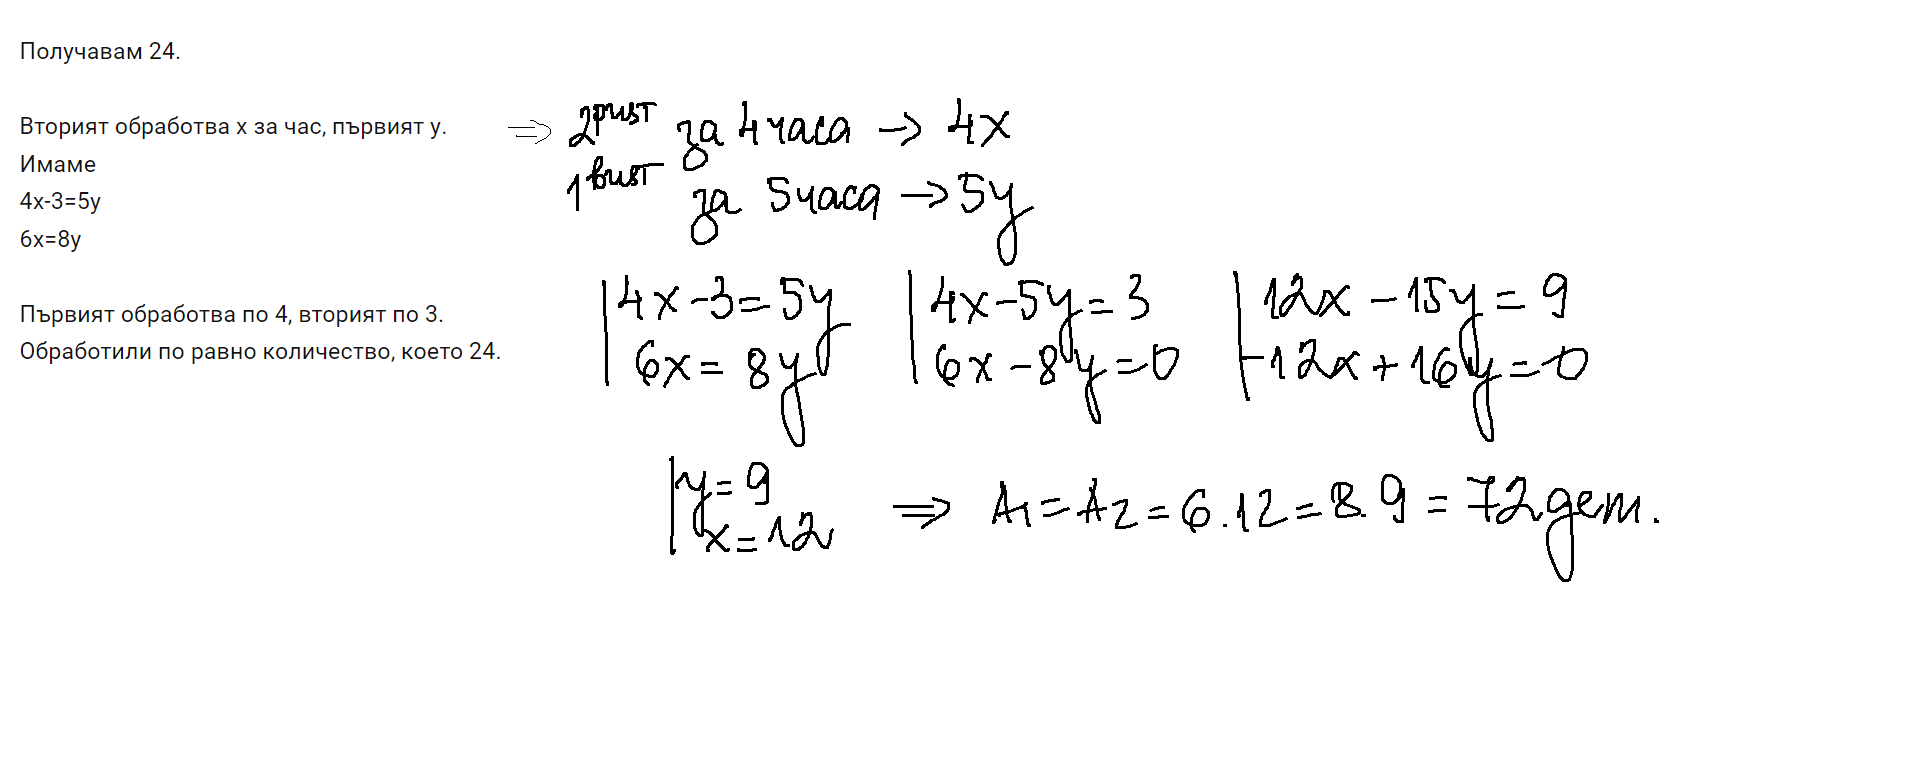 Получавам 24.
Вторият обработва x за час, първият y.
Имаме
4x-3=5y
6x=8y
Първият обработва по 4, вторият по 3.
Обработили по равно количество, което 24.
⇒ 2рият за 4 часа → 4x
1вият за 5 часа → 5y
| 4x-3=5y | 4x-5y=3 | 12x-15y=9
| 6x=8y | 6x-8y=0 | -12x+16y=0
| y=9
| x=12 ⇒ A1=A2=6.12=8.9=72 дет.